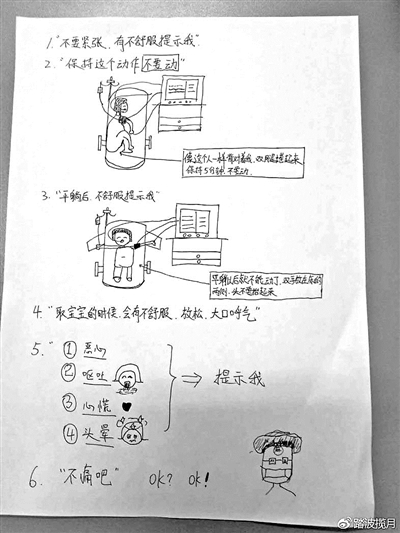 1. "不要紧张、有不舒服提示我"
2. "保持这个动作不要动"
像这个人一样背对着我、双腿蜷起来
保持5分钟、不要动.
3. "平躺后、不舒服提示我"
平躺以后就不能动了、双手放在身体的
两侧、头不要抬起来.
4. "取宝宝的时候、会有不舒服、放松、大口呼气"
5. "① 恶心
② 呕吐
③ 心慌
④ 头晕
⇒ 提示我
6. "不痛吧" ok? ok!
@路波揽月